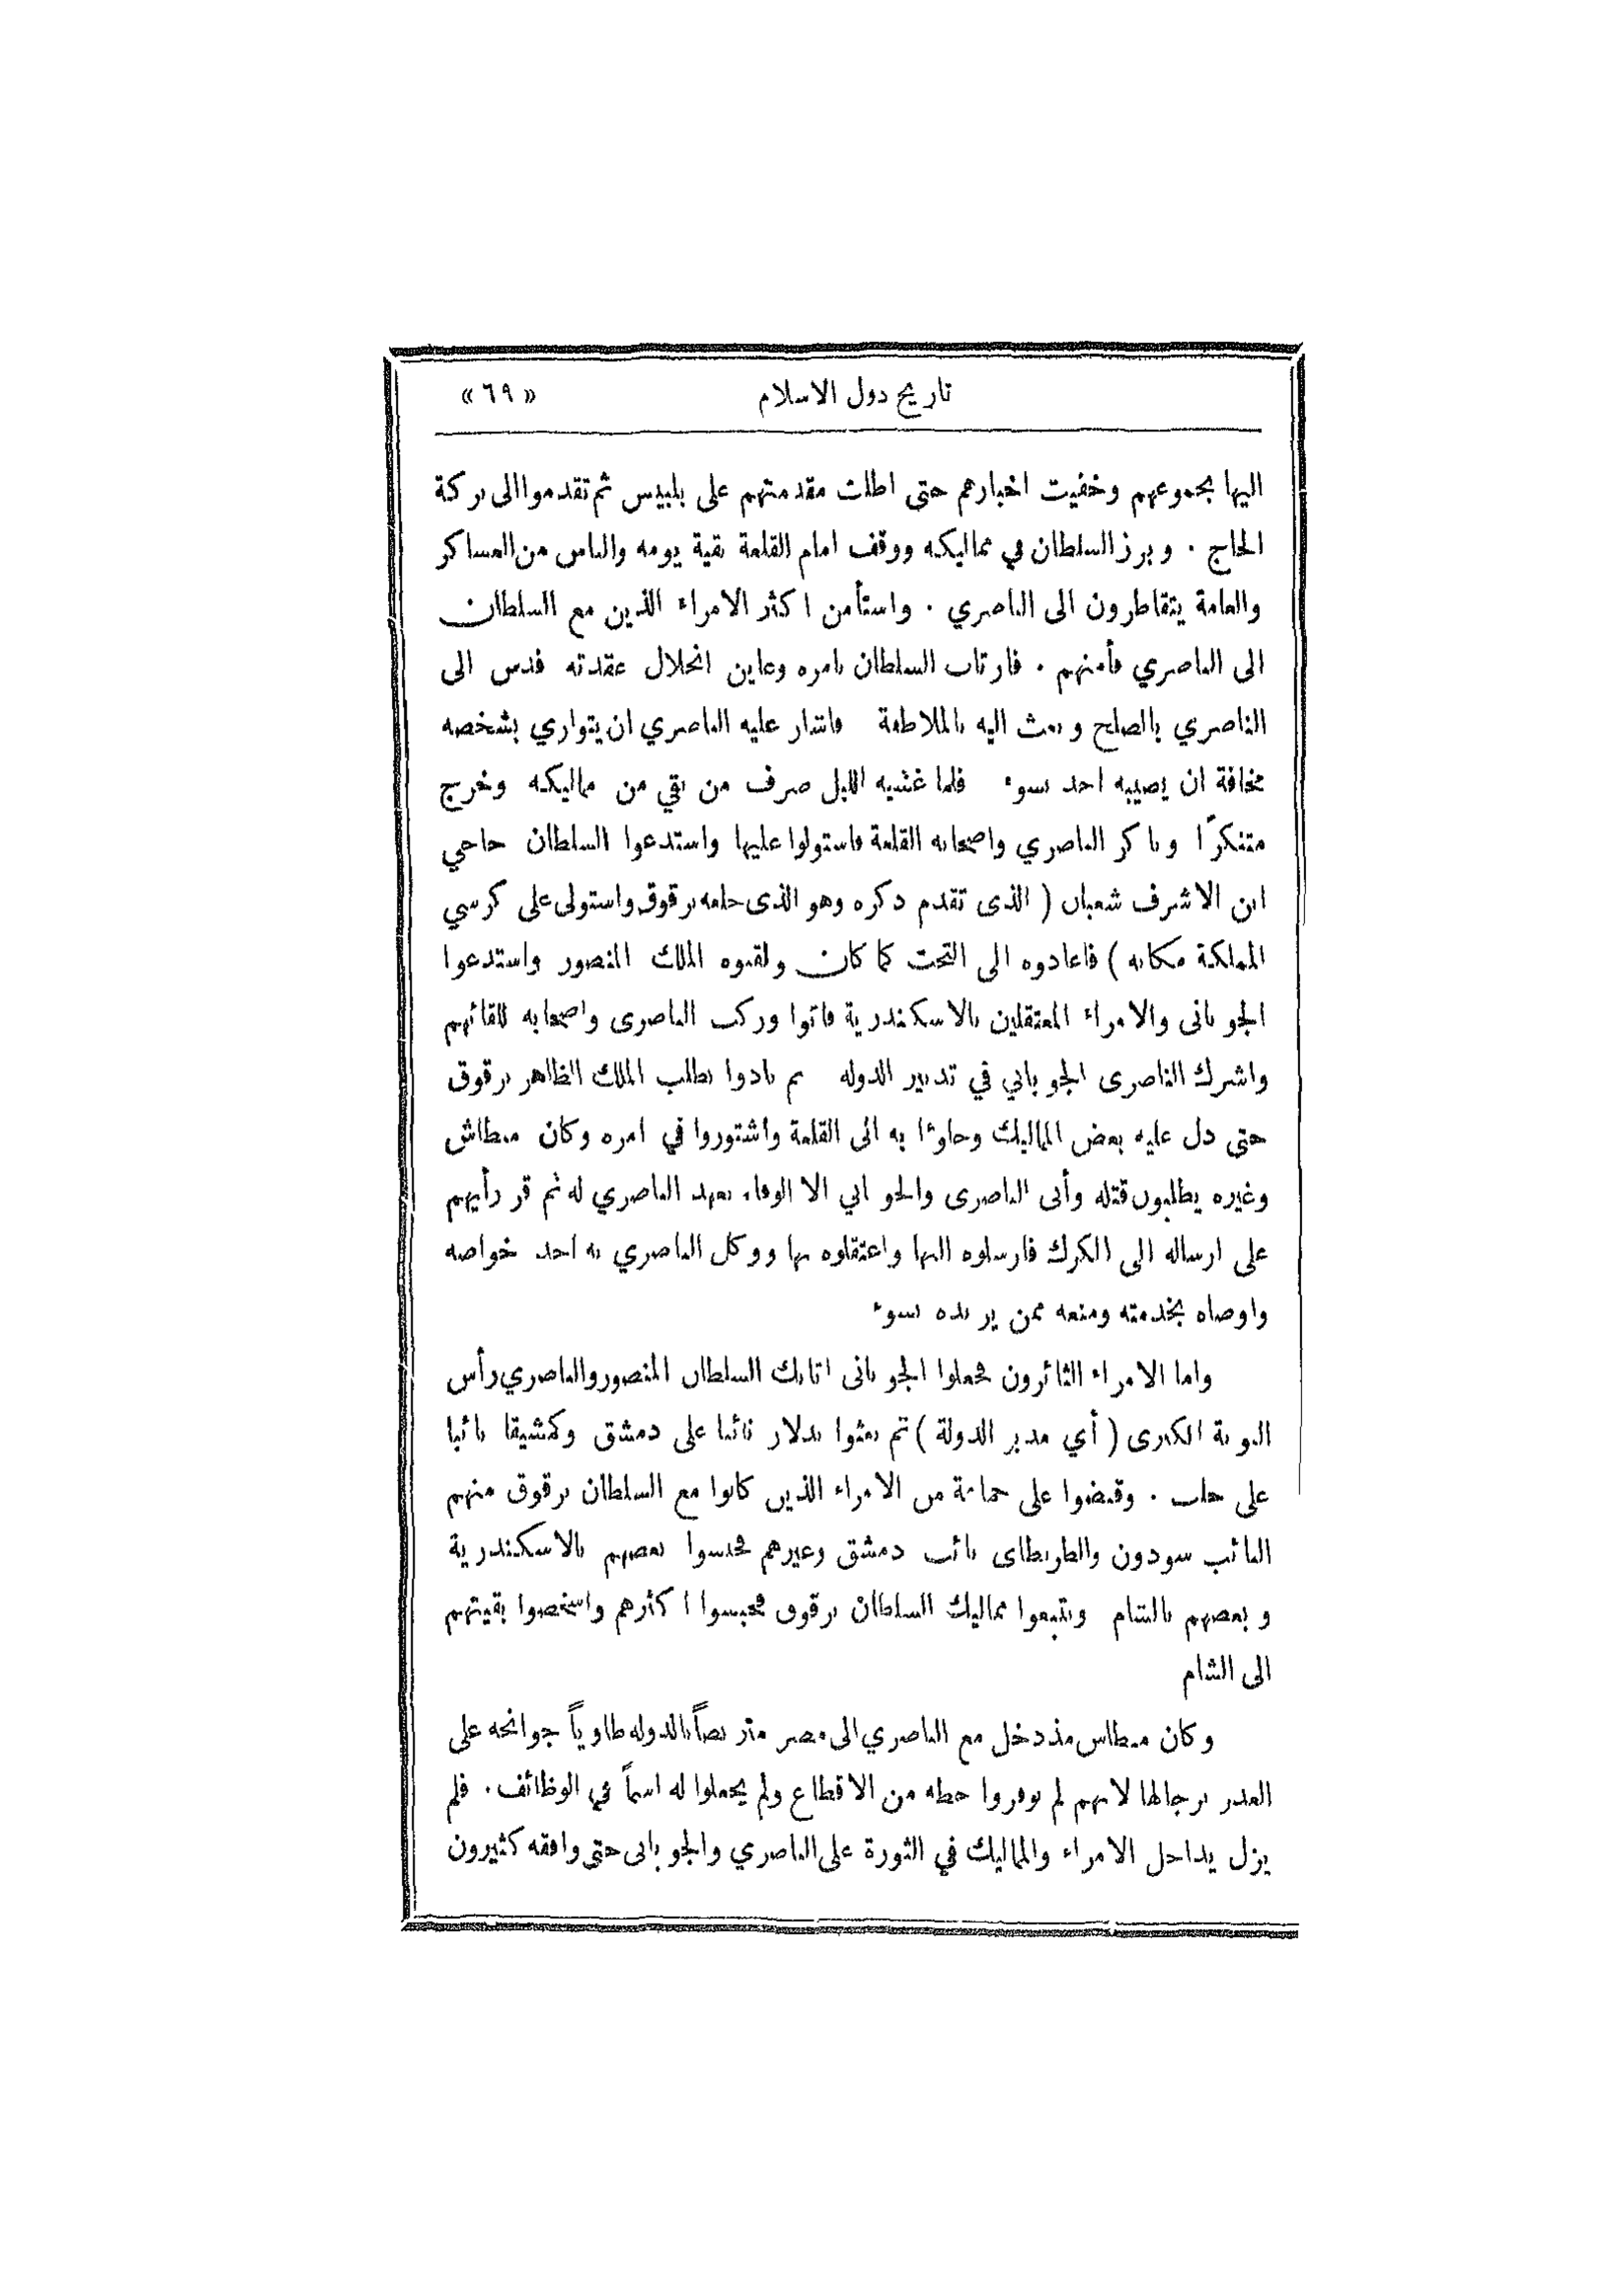 تاريخ دول الاسلام « ٦٩ »
اليها بجموعهم وخفيت اخبارهم حتى اطلت مقدمتهم على بلبيس ثم تقدموا الى بركة
الحاج . وبرز السلطان في مماليكه ووقف امام القلعة بقية يومه والناس من العساكر
والعامة يتقاطرون الى الناصري . واستأمن اكثر الامراء الذين مع السلطان
الى الناصري فأمنهم . فارتاب السلطان بامره وعاين انحلال عقدته فدس الى
الناصري بالصلح وبعث اليه بالملاطفة فاشار عليه الناصري ان يتواري بشخصه
مخافة ان يصيبه احد بسوء فلما غشيه الليل صرف من بقي من مماليكه وخرج
متنكرًا وباكر الناصري واصحابه القلعة فاستولوا عليها واستدعوا السلطان حاجي
ابن الاشرف شعبان ( الذى تقدم ذكره وهو الذى خلعه برقوق واستولى على كرسي
المملكة مكانه ) فاعادوه الى التخت كما كان ولقبوه الملك المنصور واستدعوا
الجوبانى والامراء المعتقلين بالاسكندرية فاتوا وركب الناصرى واصحابه للقائهم
واشرك الناصرى الجوباني في تدبير الدوله ثم نادوا بطلب الملك الظاهر برقوق
حتى دل عليه بعض المماليك وجاوءا به الى القلعة واشتوروا في امره وكان منطاش
وغيره يطلبون قتله وأبى الناصرى والجوباني الا الوفاء بعهد الناصري له ثم قر رأيهم
على ارساله الى الكرك فارسلوه اليها واعتقلوه بها ووكل الناصري به احد خواصه
واوصاه بخدمته ومنعه ممن يريده بسوء
واما الامراء الثائرون فجعلوا الجوبانى اتابك السلطان المنصور والناصري رأس
النوبة الكبرى ( أي مدبر الدولة ) ثم بعثوا بدلار نائبا على دمشق وكمشيقا نائبا
على حلب . وقبضوا على جماعة من الامراء الذين كانوا مع السلطان برقوق منهم
النائب سودون والطرنطاى نائب دمشق وغيرهم فحبسوا بعضهم بالاسكندرية
وبعضهم بالشام وتتبعوا مماليك السلطان برقوق فحبسوا اكثرهم واشخصوا بقيتهم
الى الشام
وكان منطاس مذ دخل مع الناصري الى مصر متربصاً بالدوله طاوياً جوانحه على
الغدر برجالها لانهم لم يوفروا حظه من الاقطاع ولم يجعلوا له اسماً في الوظائف . فلم
يزل يداخل الامراء والمماليك في الثورة على الناصري والجوبانى حتى وافقه كثيرون